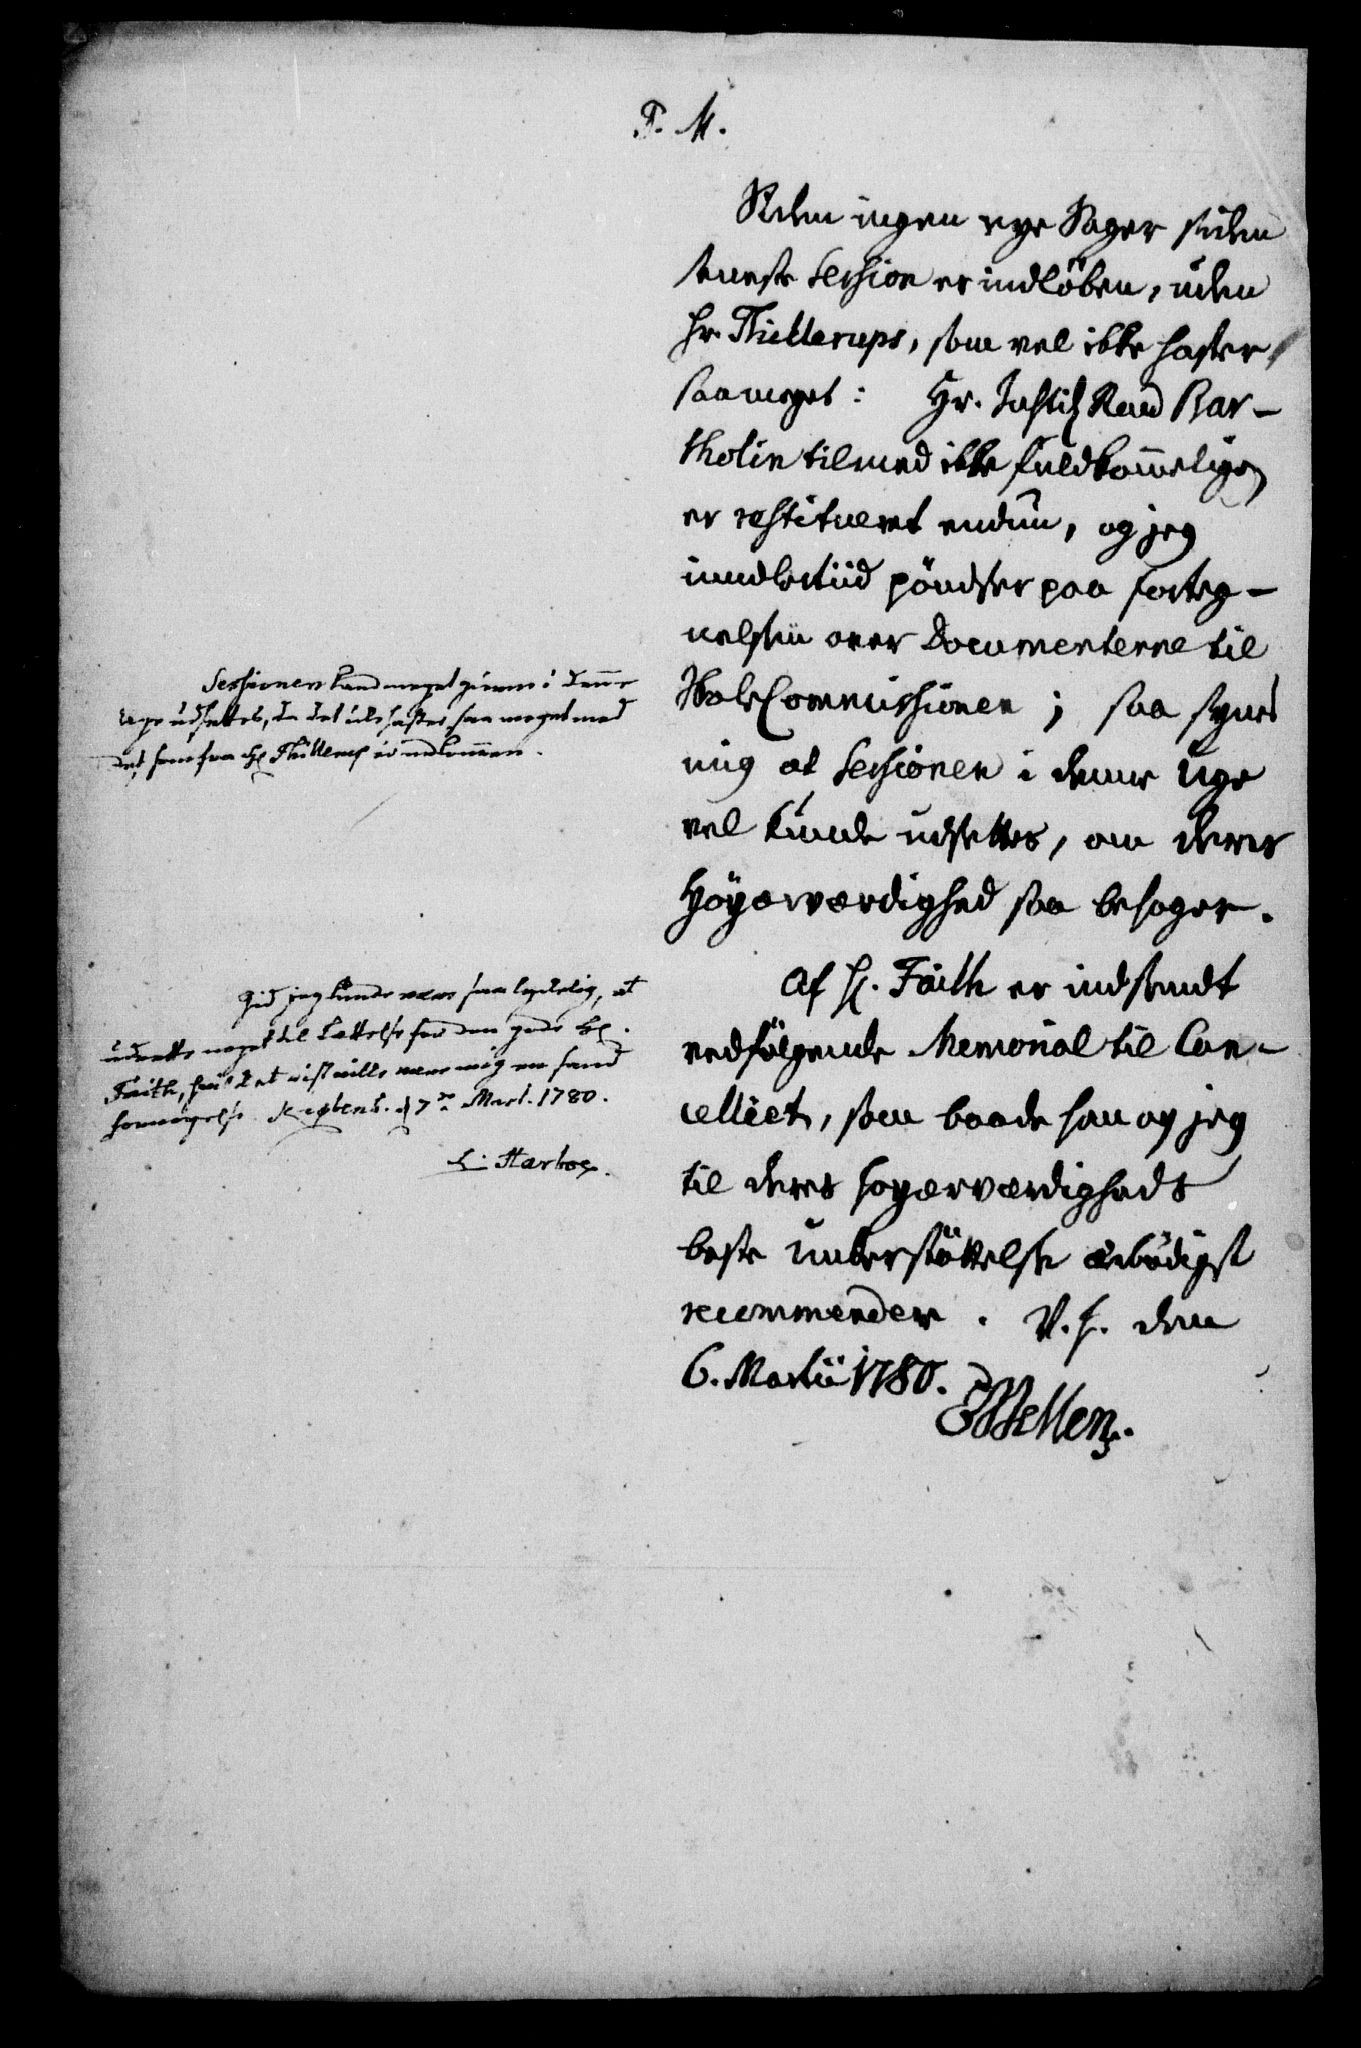 P. M.
Siden ingen nye Sager siden
seneste Session er indløben, uden
Hr. Thillerups, som vel ikke haster
saa meget: Hr. Justitz Raad Bar-
tholin tilmed ikke fuldkom̅eligen
er restitueret endnu, og jeg
imidlertiid pøndser paa forteg-
nelsen over Documenterne til
Skole Commissionen; saa synes
mig at Sessionen i denne Uge
vel kunde udsettes, om deres
Høyærværdighed saa behager.
Af H. Faith er indsendt
vedfølgende Memorial til Can-
celliet, som baade han og jeg
til deres høyærværdigheds
beste understøttelse ærbødigst
recommenderer. V. H. den
6. Martii 1780.
Sessionen kand meget gierne i denne
Uge udsettes, da det icke haster saa meget med
det, som fra H. Thillerup er indkommen.
Gid jeg kunde være saa lyckelig, at
udrette noget til Lettelse for den gode H.
Faith, hvis det vist ville være mig en sand
fornøyelse. Kiøbenh. d 7de Mart. 1780.
L. Harboe.